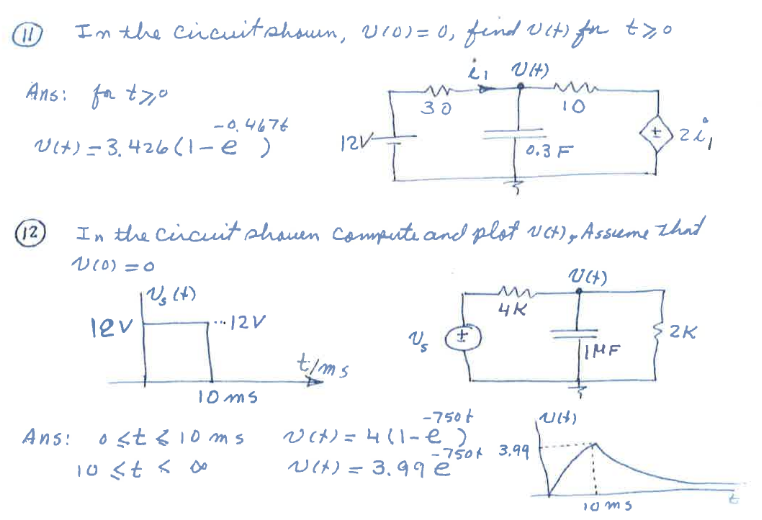 (11) In the circuit shown, v(0) = 0, find v(t) for t ≥ 0
i1 v(t)
Ans: for t ≥ 0
30 10
v(t) = 3.426 (1 - e^-0.467t)
12V 0.3 F ± 2i1
(12) In the circuit shown compute and plot v(t), Assume that
v(0) = 0
vs(t) v(t)
12V ...12V 4K
vs ± 1MF 2K
t/ms
10 ms
Ans: 0 ≤ t ≤ 10 ms v(t) = 4(1 - e^-750t)
10 ≤ t < ∞ v(t) = 3.99 e^-750t
v(t)
3.99
10 ms t